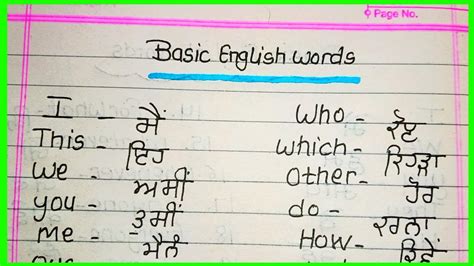 Page No.
Basic English words
I - ਮੈਂ
This - ਇਹ
we - ਅਸੀਂ
you - ਤੁਸੀਂ
me - ਮੈਨੂੰ
Who - ਕੌਣ
which - ਕਿਹੜਾ
Other - ਹੋਰ
do - ਕਰਨਾ
How - ਕਿਵੇਂ